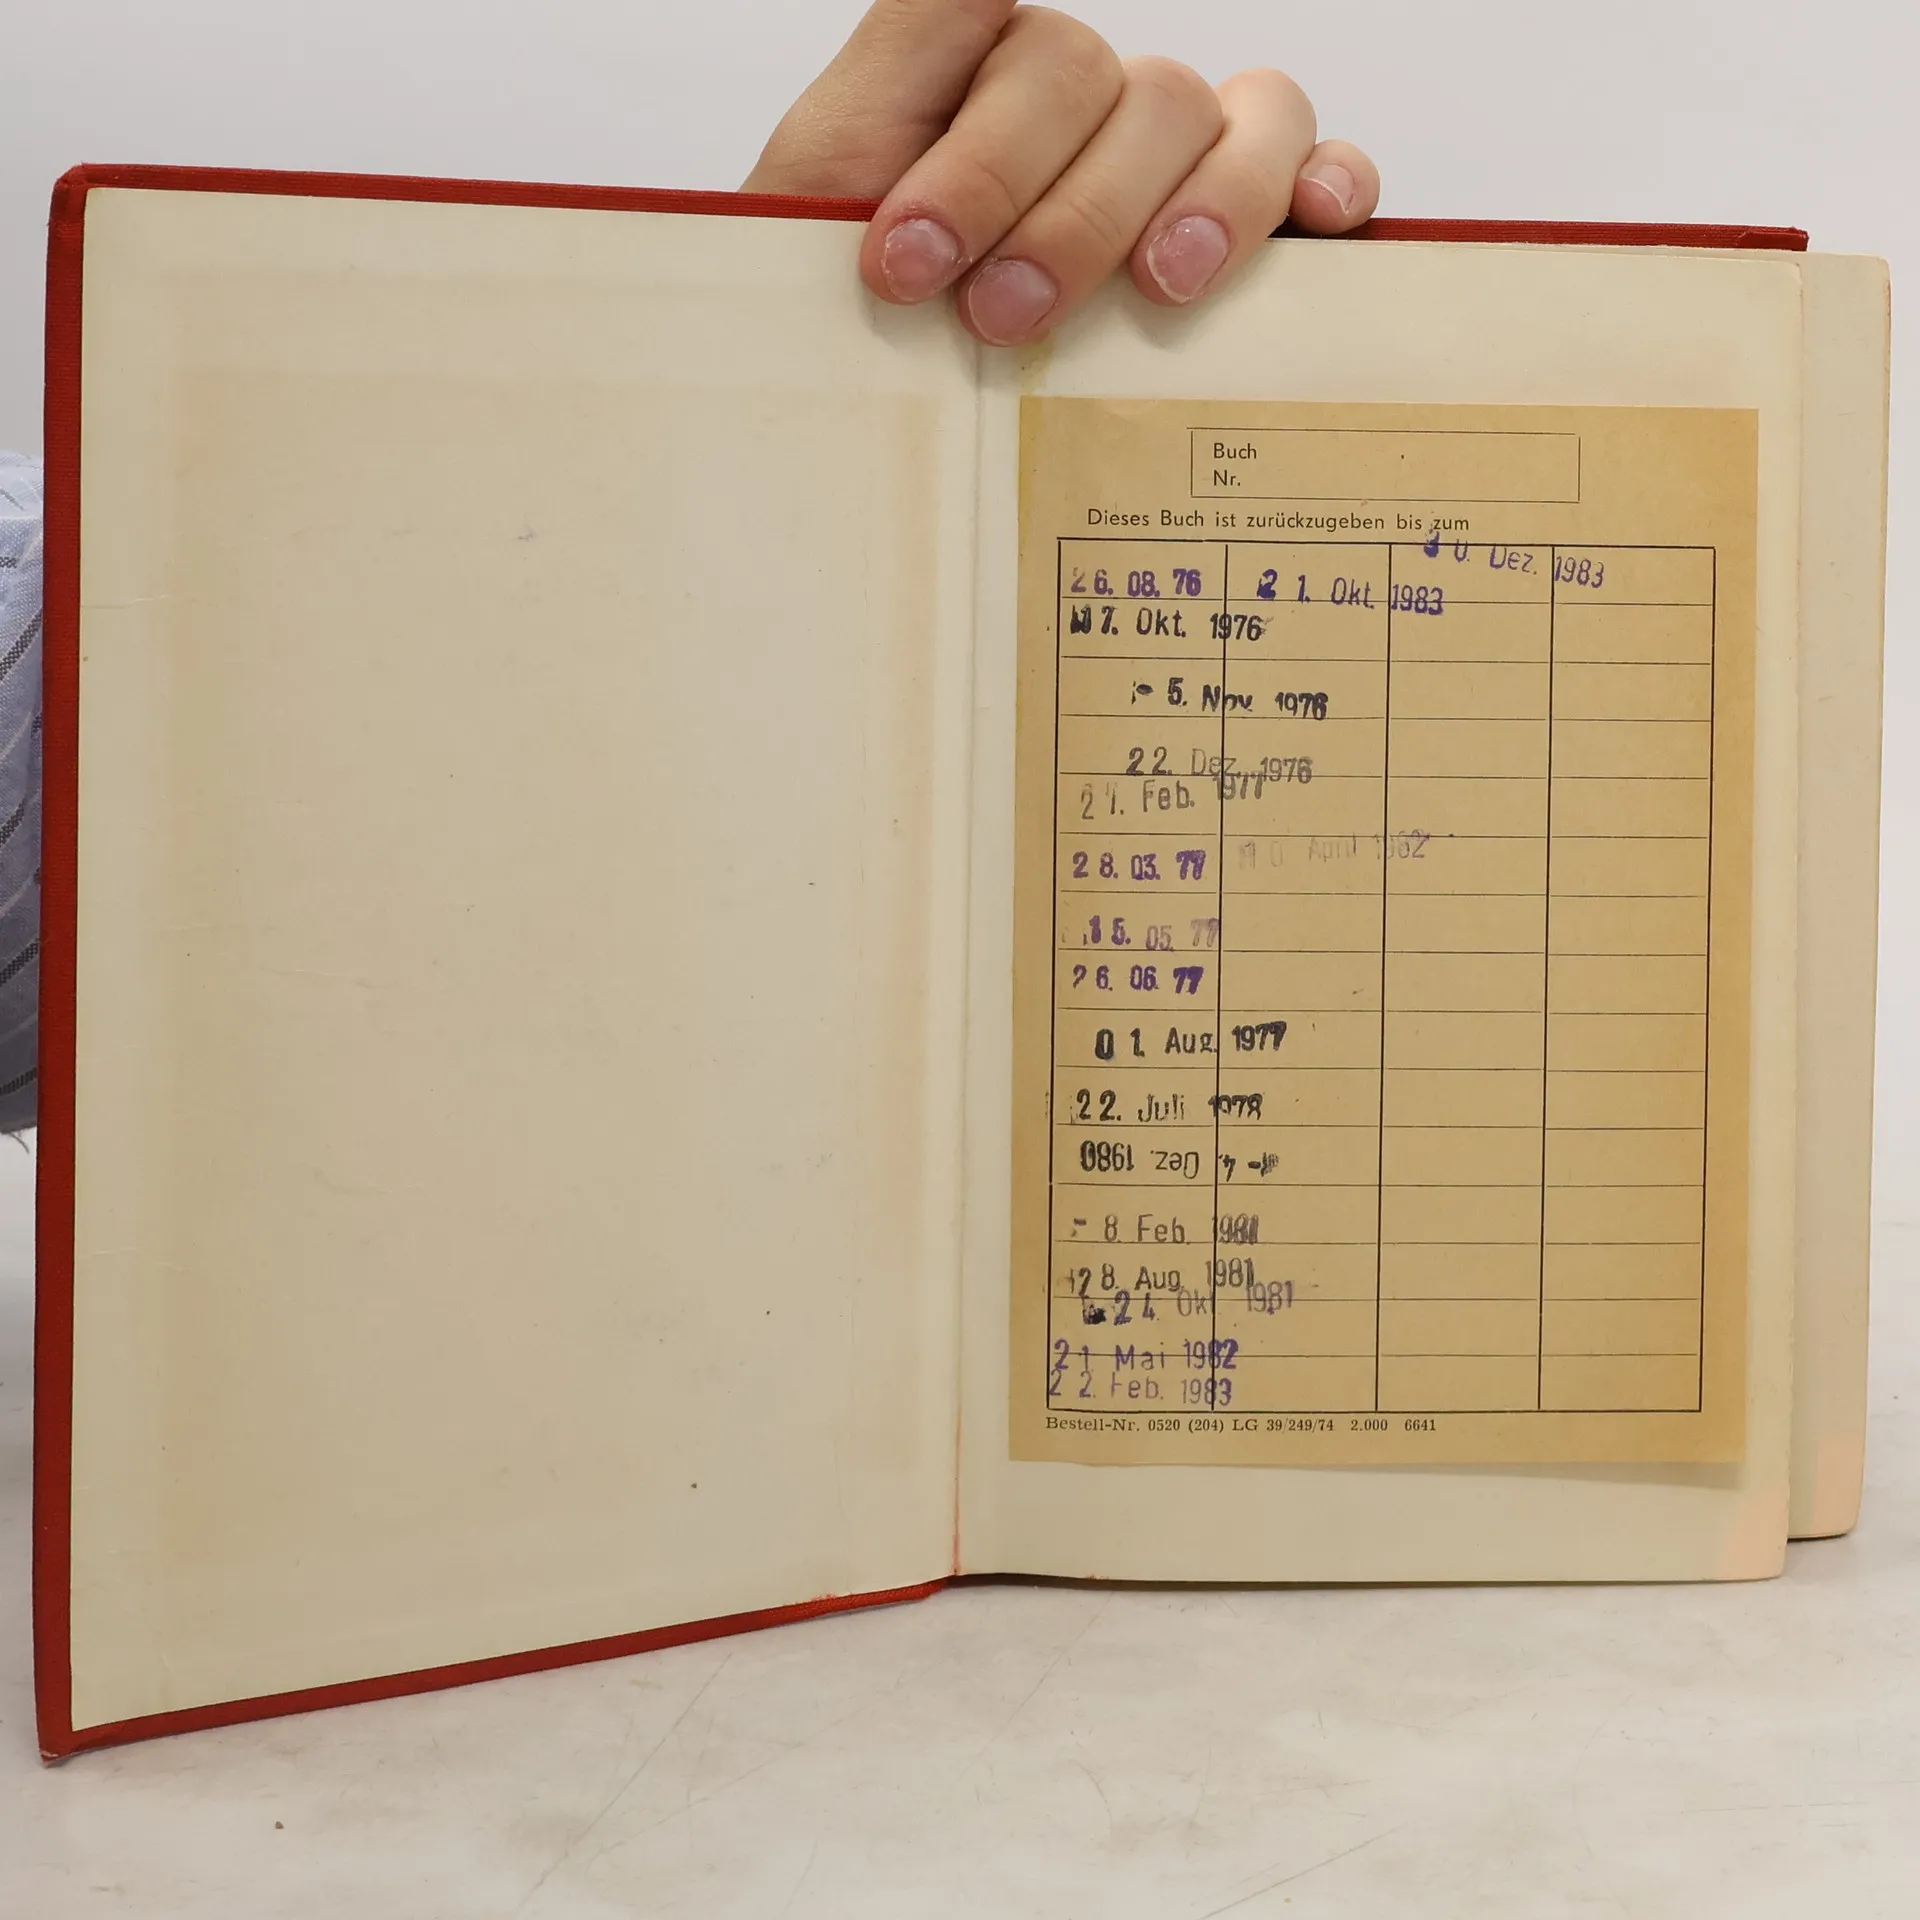 Buch
Nr.
Dieses Buch ist zurückzugeben bis zum
30. Dez. 1983
26. 08. 76
21. Okt. 1983
7. Okt. 1976
- 5. Nov. 1976
22. Dez. 1976
Feb. 1977
28. 03. 77
April 1982
15. 05. 77
26. 06. 77
01. Aug. 1977
22. Juli 1978
4. Dez. 1980
- 8. Feb. 1981
28. Aug. 1981
24. Okt. 1981
21. Mai 1982
22. Feb. 1983
Bestell-Nr. 0520 (204) LG 39/249/74 2.000 6641